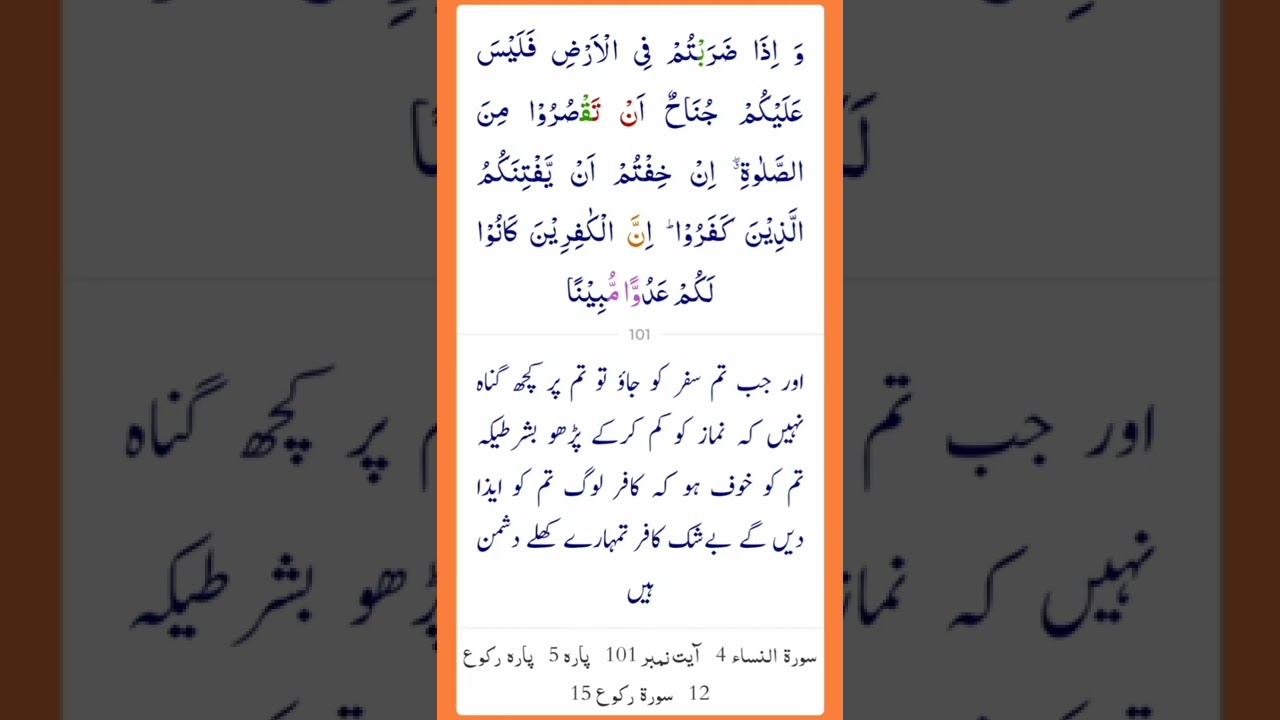 وَ اِذَا ضَرَبْتُمْ فِی الْاَرْضِ فَلَیْسَ
عَلَیْكُمْ جُنَاحٌ اَنْ تَقْصُرُوْا مِنَ
الصَّلٰوةِ ۖۗ اِنْ خِفْتُمْ اَنْ یَّفْتِنَكُمُ
الَّذِیْنَ كَفَرُوْاؕ اِنَّ الْكٰفِرِیْنَ كَانُوْا
لَكُمْ عَدُوًّا مُّبِیْنًا
101
اور جب تم سفر کو جاؤ تو تم پر کچھ گناہ
نہیں کہ نماز کو کم کرکے پڑھو بشرطیکہ
تم کو خوف ہو کہ کافر لوگ تم کو ایذا
دیں گے بےشک کافر تمہارے کھلے دشمن
ہیں
سورۃ النساء 4 آیت نمبر 101 پارہ 5 پارہ رکوع
12 سورۃ رکوع 15